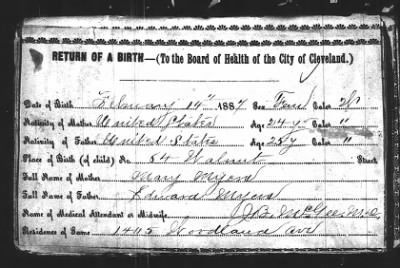 RETURN OF A BIRTH—(To the Board of Health of the City of Cleveland.)
Date of Birth February 14" 1887 Sex Fem Color W
Nativity of Mother United States Age 24 y Color "
Nativity of Father United States Age 25 y Color "
Place of Birth (of child) No. 54 Walnut Street
Full Name of Mother Mary Myers
Full Name of Father Edward Myers
Name of Medical Attendant or Midwife J.B. McGee M.D.
Residence of Same 1405 Woodland Ave